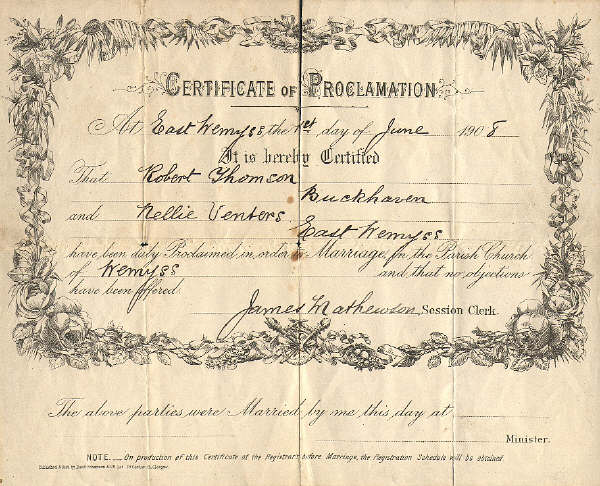 CERTIFICATE OF PROCLAMATION
At East Wemyss the 1st day of June 1908
It is hereby Certified
That Robert Thomson Buckhaven
and Nellie Venters East Wemyss
have been duly Proclaimed in order to Marriage, in the Parish Church
of Wemyss and that no objections
have been offered.
James Mathewson, Session Clerk.
The above parties were Married by me this day at
Minister.
NOTE.__On production of this Certificate at the Registrars before Marriage, the Registration Schedule will be obtained